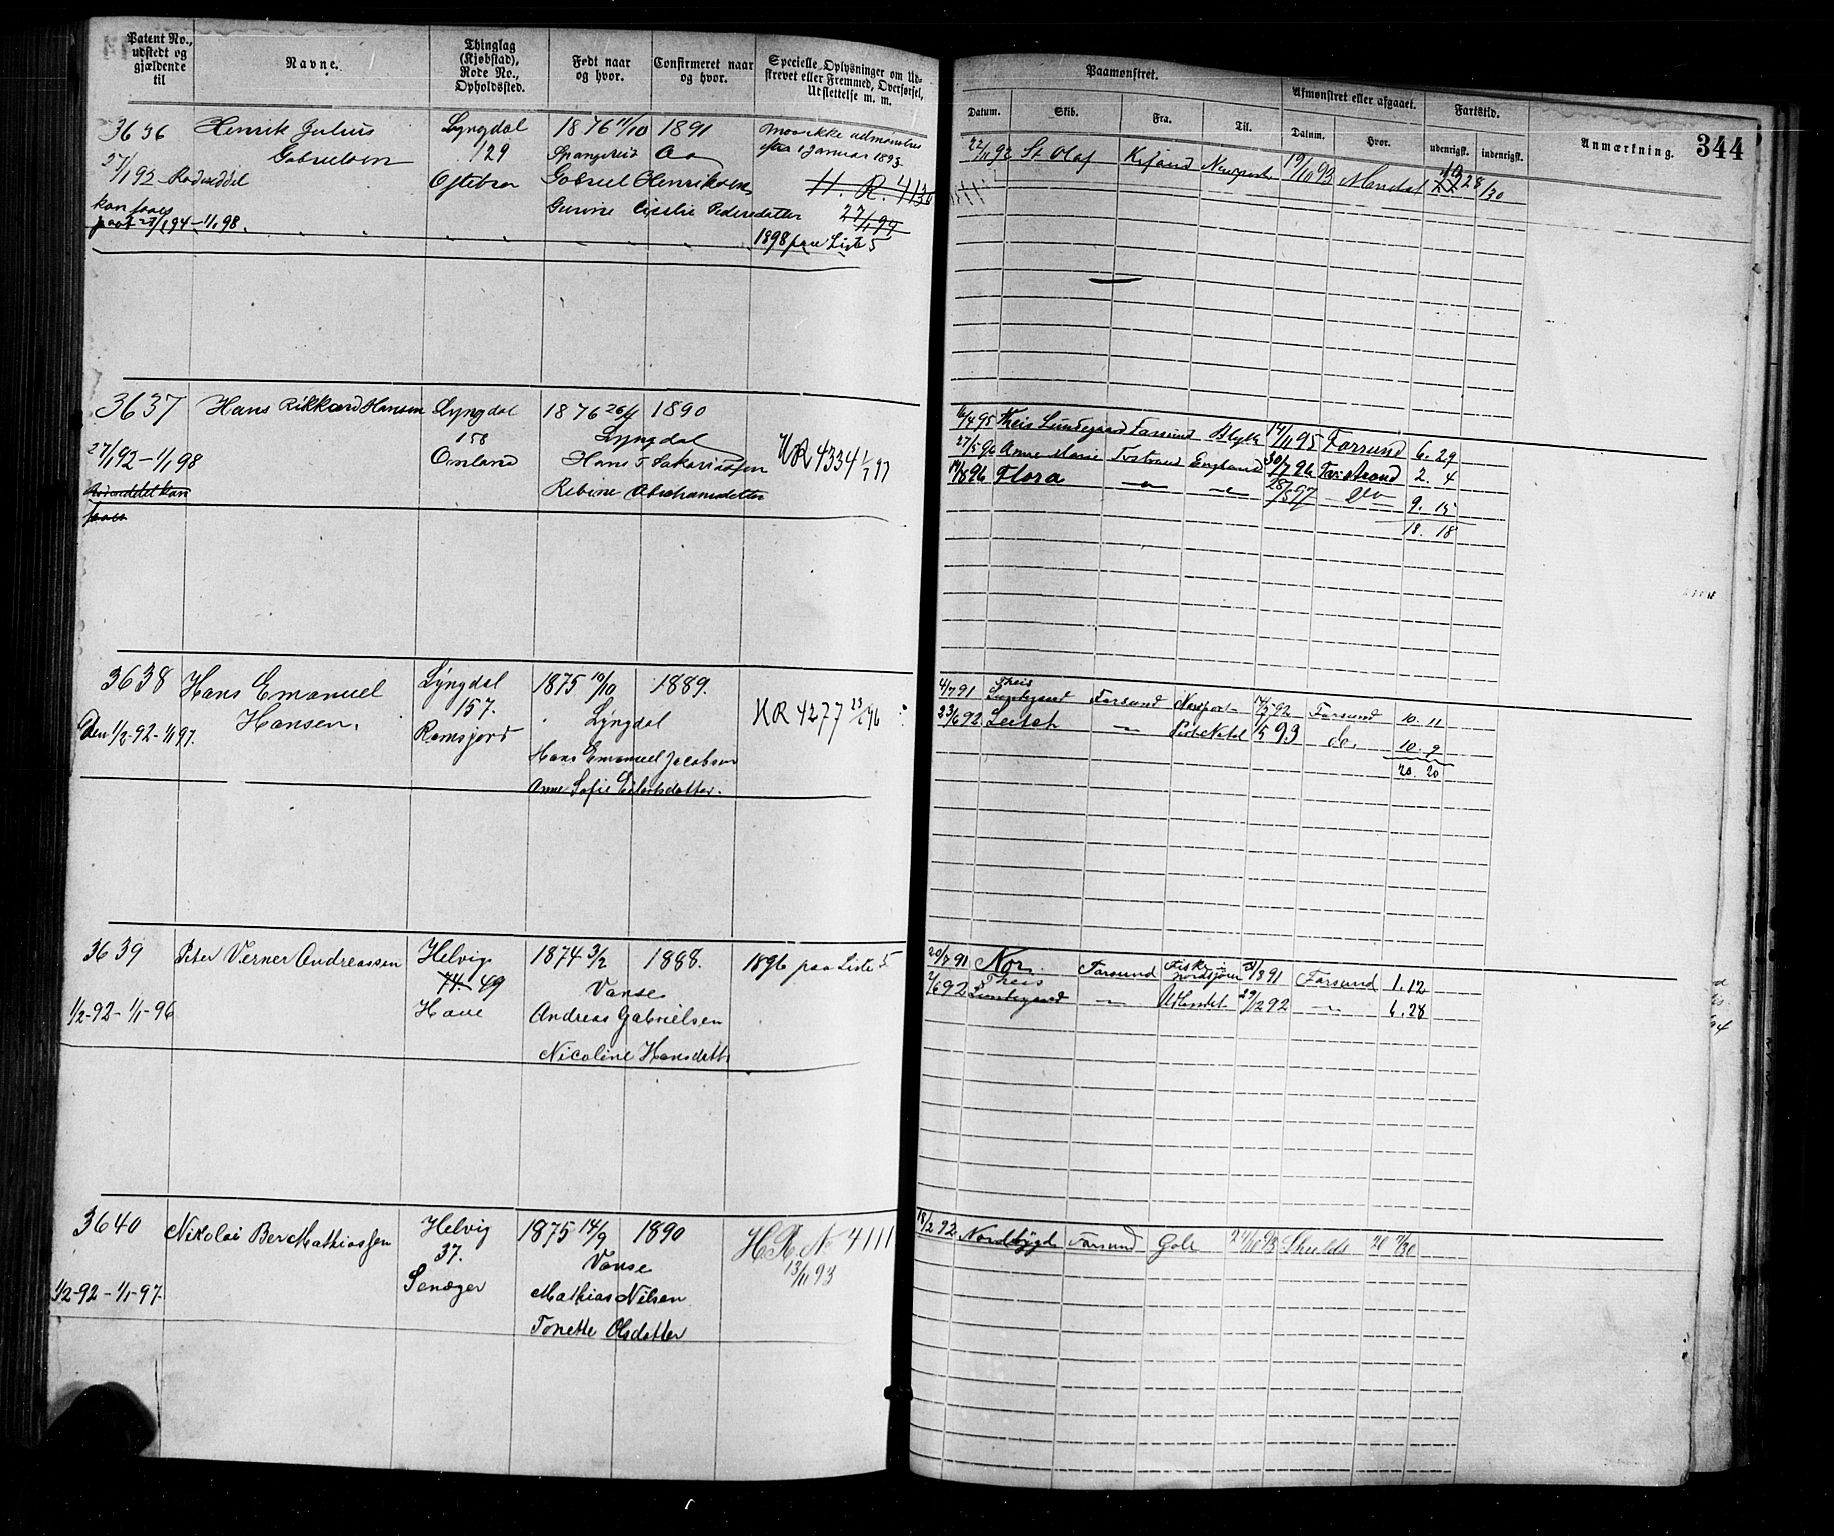 Patent No.,
udstedt og
gjældende
til
Navne.
Thinglag
(Kjøbstad),
Rode No.,
Opholdssted.
Født naar
og hvor.
Confirmeret naar
og hvor.
Specielle Oplysninger om Ud-
skrevet eller Fremmed, Overførsel,
Udslettelse m. m.
Paamønstret.
Datum.
Skib.
Fra.
Til.
Afmønstret eller afgaaet.
Datum.
Hvor.
Fartstid.
udenrigsk.
indenrigsk.
Anmærkning.
344
3636 Henrik Julius Lyngdal 1876 11/10 1891 Maa ikke udmønstres
Gabrielsen 129 Spangereid Aa efter 1 Januar 1893.
27/1 92 Oftebro Gabriel Henriksen 11. R. 4130
kan faaes Gurine Cicilie Pedersdatter 27/1 94
paa 23/1 94 - 1/1 98. 1898 paa Liste 5
22/11 92 St Olaf Newport 19/10 93 Mandal 28 1/30
3637 Hans Rikkard Hansen Lyngdal 1876 26/1 1890
158 Lyngdal HR 4334 1/1 97
27/1 92 - 1/1 98 Hans T Sakariassen
kan Rebine Abrahamsdatter
faaes
16/4 95 Theis Lundegaard Farsund Blyth 14/11 95 Farsund 6. 29
27/5 96 Anne Marie Tvstrand England 30/7 96 Tvedestrand 2. 4
14/8 96 Flora - " - - " - 28/5 97 Do 9. 15
18. 18
3638 Hans Emanuel Lyngdal 1875 10/10 1889.
Hansen. 157. Lyngdal HR 4277 23/1 96
Den 1/2-92-1/1 97. Ramsjord
Hans Emanuel Jacobsen
Anne Sofie Eilertsdatter.
4/7 91 Theis Lundegaard Farsund Newport 14/5 92 Farsund 10. 11
23/6 92 Leitch - " - Port Natal 1/5 93 do. 10. 9
20. 20
3639 Peter Verner Andreassen Helvig 1874 3/2 1888. 1896 paa Liste 5
74. 49 Vanse
1/2-92-1/1-96 Have Andreas Gabrielsen
Nicoline Hansdatt
20/7 91 Nor. Farsund Fiske i Nordsjøen 31/8 91 Farsund 1. 12
2/6 92 Theis Lundegaard - " - Udlandet 29/12 92 - " - 6. 28
3640 Nikolai Ber Mathiassen Helvig 1875 14/9 1890 HR No 4111
37. Vanse 13/11 93
1/2-92-1/1-97. Mathias Nilsen
Tonette Olsdatter
18/2 92 Nordbygd Farsund 27/10 93 Shields 20 7/30